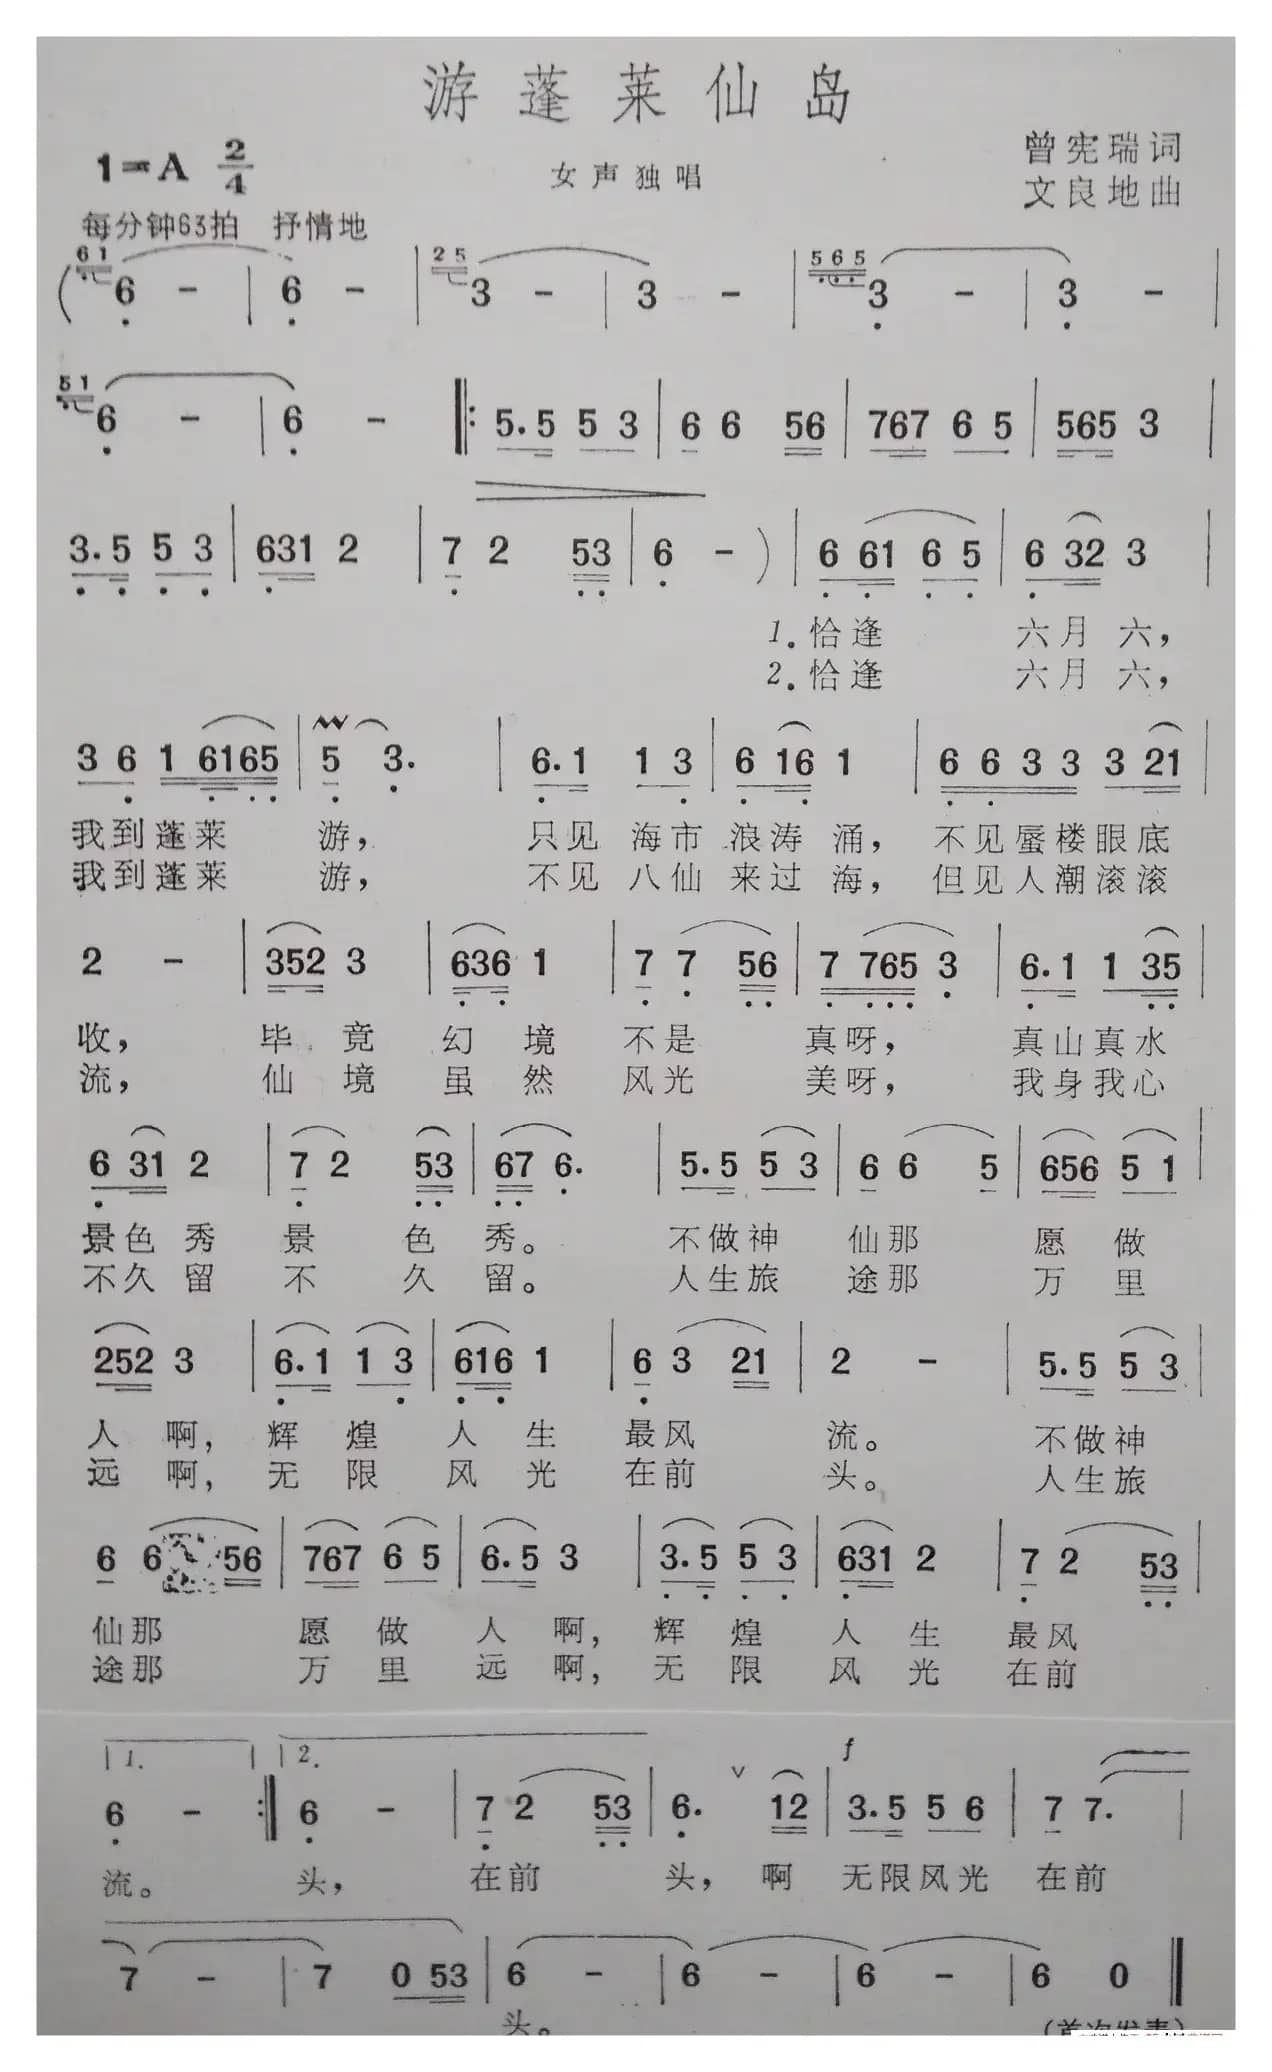 游蓬莱仙岛
1=A 2/4
女声独唱
曾宪瑞词
文良地曲
每分钟63拍 抒情地
61 ( 6 - | 6 - | 25 3 - | 3 - | 565 3 - | 3 - |
51 6 - | 6 - ‖: 5.5 5 3 | 6 6 56 | 767 6 5 | 565 3 |
3.5 5 3 | 631 2 | 7 2 53 | 6 - ) | 6 61 6 5 | 6 32 3 |
1.恰逢 六月六，
2.恰逢 六月六，
3 6 1 6165 | 5 3. | 6.1 1 3 | 6 16 1 | 6 6 3 3 3 21 |
我到蓬莱 游， 只见 海市 浪涛 涌， 不见蜃楼眼底
我到蓬莱 游， 不见 八仙 来过 海， 但见人潮滚滚
2 - | 352 3 | 636 1 | 7 7 56 | 7 765 3 | 6.1 1 35 |
收， 毕竟 幻境 不是 真呀， 真山真水
流， 仙境 虽然 风光 美呀， 我身我心
6 31 2 | 7 2 53 | 67 6. | 5.5 5 3 | 6 6 5 | 656 5 1 |
景色秀 景 色 秀。 不做神 仙那 愿做
不久留 不 久 留。 人生旅 途那 万里
252 3 | 6.1 1 3 | 616 1 | 6 3 21 | 2 - | 5.5 5 3 |
人 啊， 辉煌 人生 最风 流。 不做神
远 啊， 无限 风光 在前 头。 人生旅
6 6 56 | 767 6 5 | 6.5 3 | 3.5 5 3 | 631 2 | 7 2 53 |
仙那 愿做 人 啊， 辉煌 人生 最风
途那 万里 远 啊， 无限 风光 在前
1. 2. f
6 - :‖ 6 - | 7 2 53 | 6. ∨ 12 | 3.5 5 6 | 7 7. |
流。 头， 在前 头， 啊 无限风光 在前
7 - | 7 0 53 | 6 - | 6 - | 6 - | 6 0 ‖
头。
(首次发表)